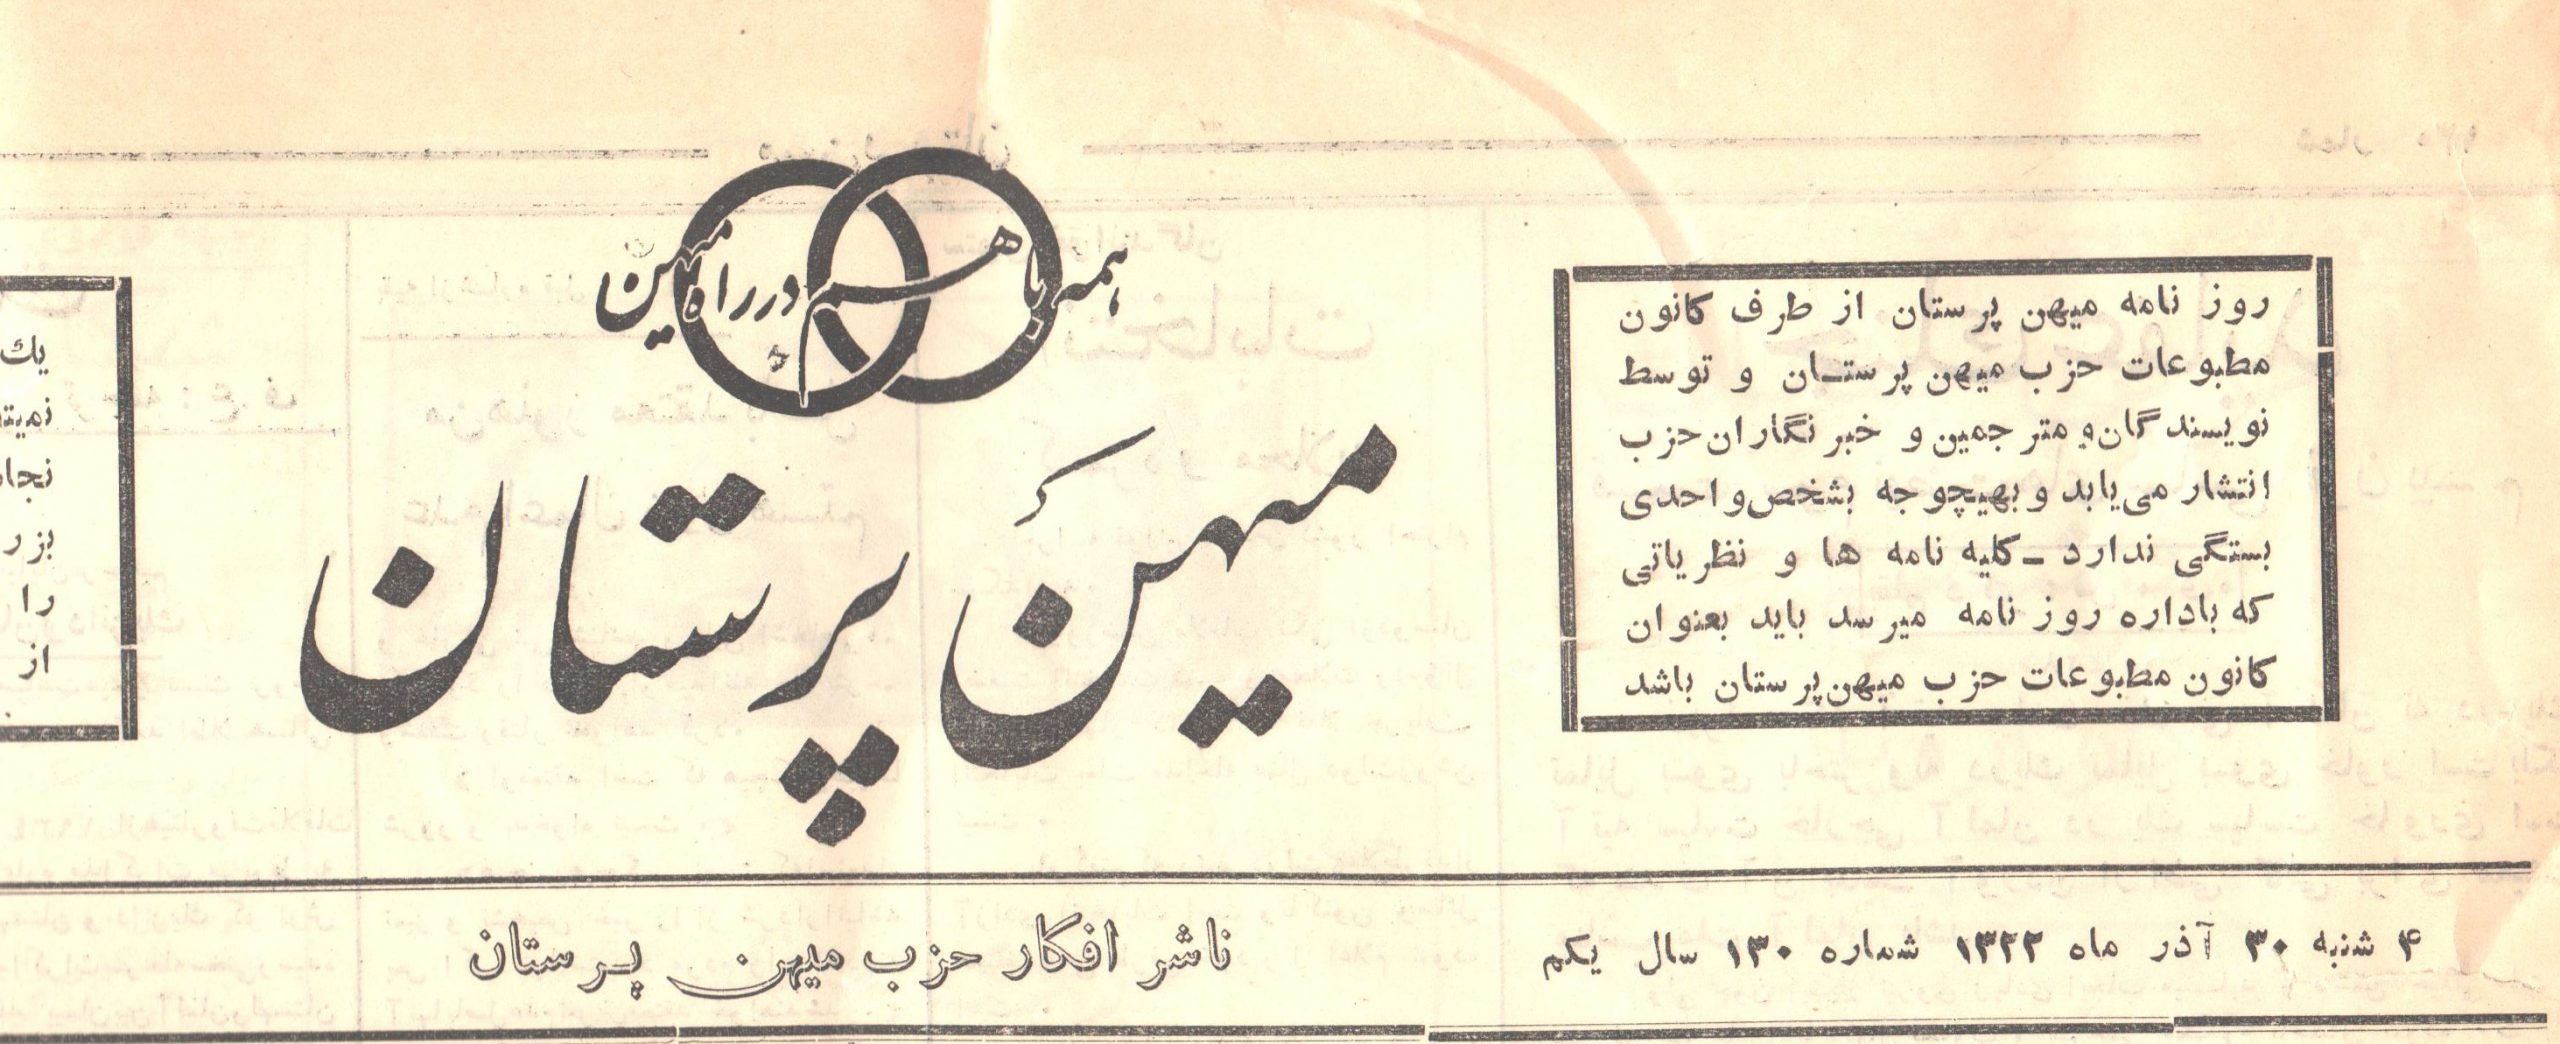 همه باهم در راه میهن
میهن پرستان
روز نامه میهن پرستان از طرف کانون
مطبوعات حزب میهن پرستـان و توسط
نویسندگان و مترجمین و خبرنگاران حزب
انتشار می‌یابد و بهیچوجه بشخص واحدی
بستگی ندارد ـ کلیه نامه ها و نظریاتی
که باداره روز نامه میرسد باید بعنوان
کانون مطبوعات حزب میهن‌پرستان باشد
یك
نجا
بزر
را
از
۴ شنبه ۳۰ آذر ماه ۱۳۲۲ شماره ۱۳۰ سال یکم
ناشر افکار حزب میهن پـرستان